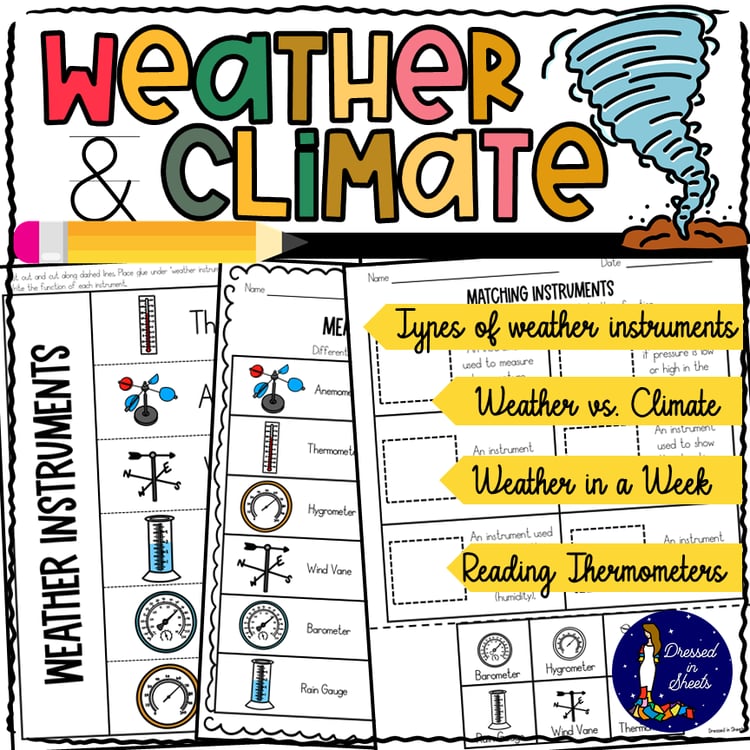 Weather
& Climate
cut out and cut along dashed lines. Place glue under "weather instrum
rite the function of each instrument.
WEATHER INSTRUMENTS
Th
A
Name
MEA
Different
Anemome
Thermomet
Hygrometer
Wind Vane
Barometer
Rain Gauge
Name
Date
MATCHING INSTRUMENTS
Types of weather instruments
used to measure
if pressure is low
or high in the
Weather vs. Climate
An instrument
An instrument
used to show
Weather in a Week
An instrument used
An instrument
Reading Thermometers
(humidity).
Barometer
Hygrometer
Rain Gauge
N
E
S
W
Wind Vane
Thermo
Dressed
in
Sheets
Dressed in Sheets